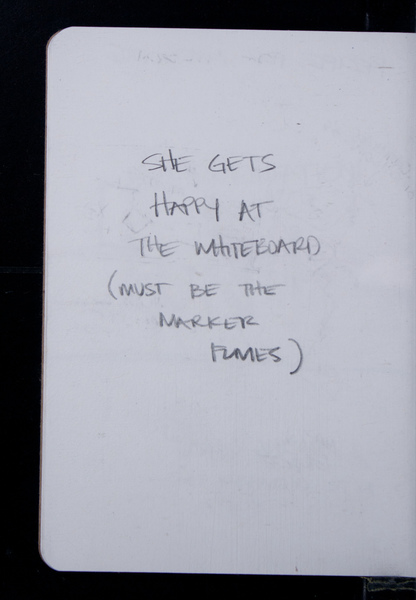 SHE GETS
HAPPY AT
THE WHITEBOARD
(MUST BE THE
MARKER
FUMES)